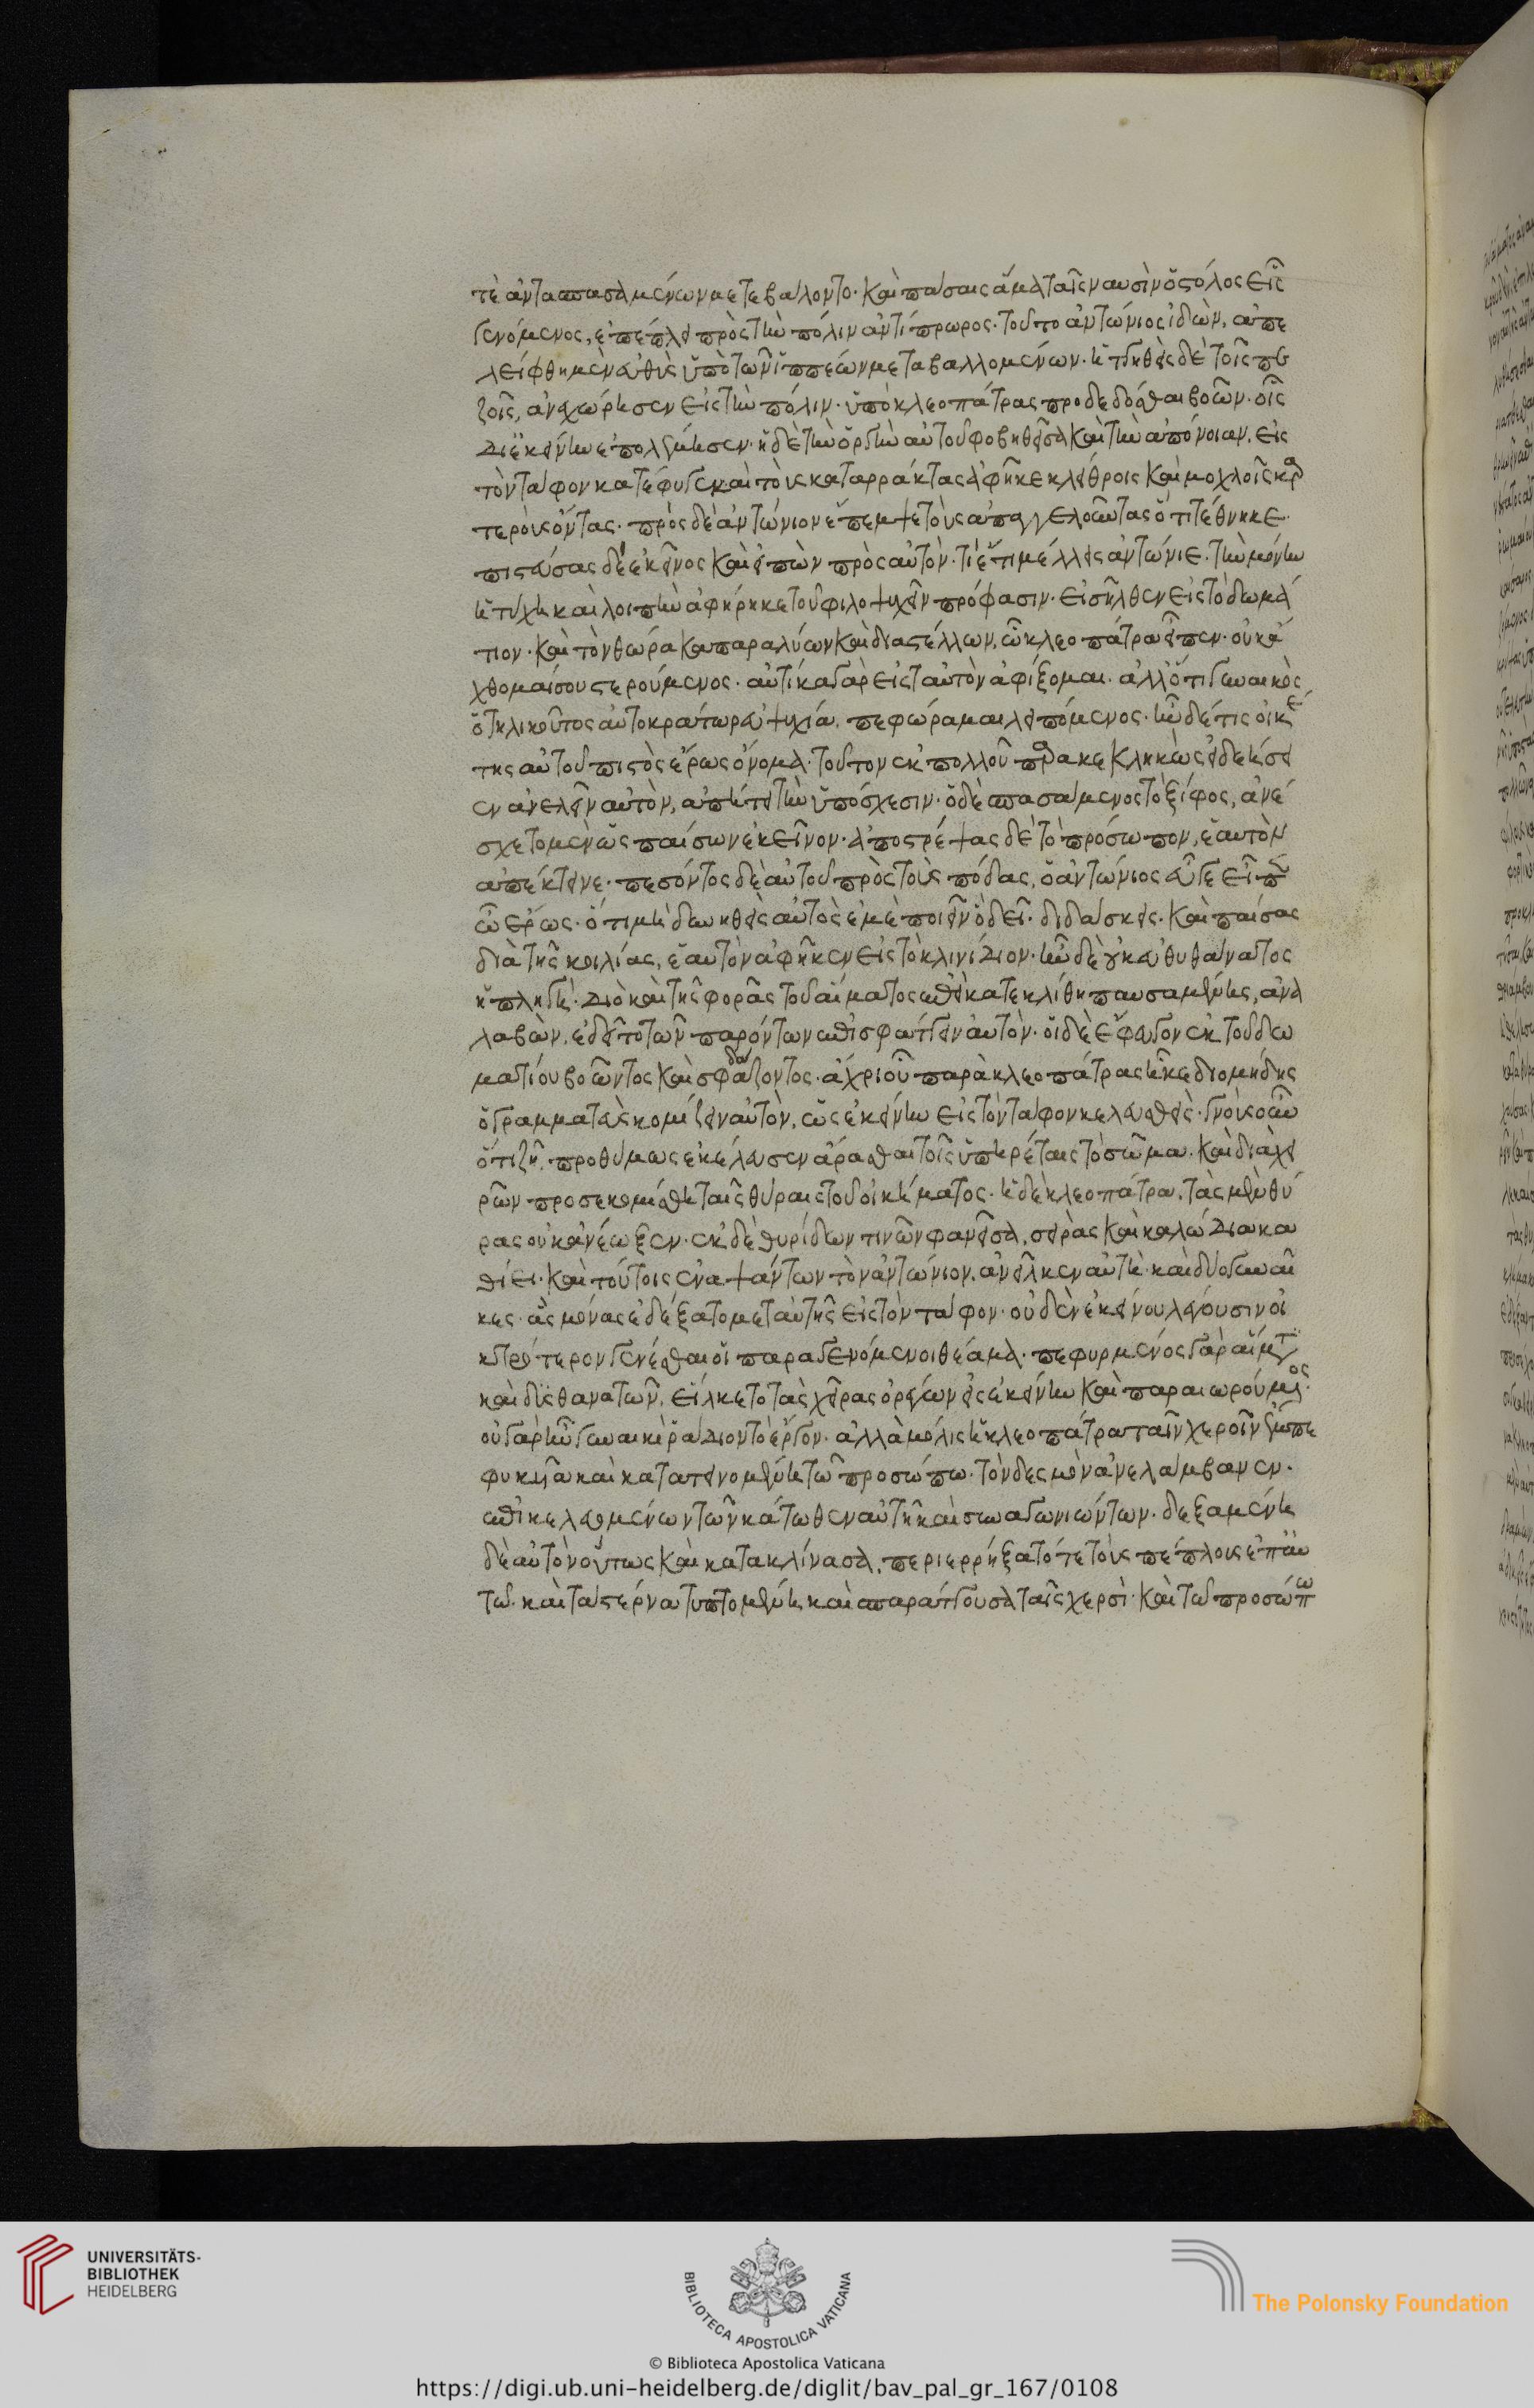 τὲ ἀνταπασαμένων μετεβάλοντο· καὶ πάσαις ἅμα ταῖς ναυσὶν ὁ στόλος εἷς
γενόμενος, ἐπέπλει πρὸς τὴν πόλιν ἀντίπρωρος· τοῦτο ἀντώνιος ἰδὼν, ἀπε
λείφθη μὲν εὐθὺς ὑπὸ τῶν ἱππέων μεταβαλλομένων· ἡττηθεὶς δὲ τοῖς πε
ζοῖς, ἀνεχώρησεν εἰς τὴν πόλιν· ὑπὸ κλεοπάτρας προδεδόσθαι βοῶν· οἷς
δι' ἐκείνην ἐπολέμησεν· ἡ δὲ τὴν ὀργὴν αὐτοῦ φοβηθεῖσα καὶ τὴν ἀπόνοιαν, εἰς
τὸν τάφον κατέφυγε καὶ τοὺς καταρράκτας ἀφῆκε κλείθροις καὶ μοχλοῖς καρ
τεροὺς ὄντας· πρὸς δὲ ἀντώνιον ἔπεμψε τοὺς ἀπαγγελοῦντας ὅτι τέθνηκε·
πιστεύσας δὲ ἐκεῖνος καὶ εἰπὼν πρὸς αὐτὸν· τί ἔτι μέλλεις ἀντώνιε· τὴν μόνην
ἡ τύχη καὶ λοιπὴν ἀφήρηκε τοῦ φιλοψυχεῖν πρόφασιν· εἰσῆλθεν εἰς τὸ δωμά
τιον· καὶ τὸν θώρακα παραλύων καὶ διαστέλλων, ὦ κλεοπάτρα εἶπεν· οὐκ ἄ
χθομαί σου στερούμενος· αὐτίκα γὰρ εἰς ταὐτὸν ἀφίξομαι· ἀλλ' ὅτι γυναικὸς
ὁ τηλικοῦτος αὐτοκράτωρ εὐψυχίᾳ, πεφώραμαι λειπόμενος· ἦν δέ τις οἰκέ
της αὐτοῦ πιστὸς ἔρως ὄνομα· τοῦτον ἐκ πολλοῦ παρακεκληκὼς εἰ δεήσει
εν ἀνελεῖν αὐτὸν, ἀπῄτει τὴν ὑπόσχεσιν· ὁ δὲ σπασάμενος τὸ ξίφος, ἀνέ
σχε τὸ μὲν ὡς παίσων ἐκεῖνον· ἀποστρέψας δὲ τὸ πρόσωπον, ἑαυτὸν
ἀπέκτεινε· πεσόντος δὲ αὐτοῦ πρὸς τοὺς πόδας, ὁ ἀντώνιος εὖ γε εἶπεν
ὦ ἔρως· ὅτι μὴ δυνηθεὶς αὐτὸς ἐμὲ ποιεῖν ὃ δεῖ· διδάσκεις· καὶ παίσας
διὰ τῆς κοιλίας, ἑαυτὸν ἀφῆκεν εἰς τὸ κλινίδιον· ἦν δὲ οὐκ εὐθυθάνατος
ἡ πληγή· διὸ καὶ τῆς φορᾶς τοῦ αἵματος ἐπεὶ κατεκλίθη παυσαμένης, ἀνα
λαβὼν, ἐδεῖτο τῶν παρόντων ἐπισφάττειν αὐτὸν· οἱ δὲ ἔφευγον ἐκ τοῦ δω
ματίου βοῶντος καὶ σφαδάζοντος· ἄχρι οὗ παρὰ κλεοπάτρας ἧκε διομήδης
ὁ γραμματεὺς κομίζειν αὐτὸν, ὡς ἐκείνην εἰς τὸν τάφον κελευσθεὶς· γνοὺς οὖν
ὅτι ζῇ, προθύμως ἐκέλευσεν ἄρασθαι τοῖς ὑπηρέταις τὸ σῶμα· καὶ διὰ χει
ρῶν προσεκομίσθη ταῖς θύραις τοῦ οἰκήματος· ἡ δὲ κλεοπάτρα, τὰς μὲν θύ
ρας οὐκ ἀνέῳξεν· ἐκ δὲ θυρίδων τινῶν φανεῖσα, σειρὰς καὶ καλώδια κα
θίει· καὶ τούτοις ἐναψάντων τὸν ἀντώνιον, ἀνεῖλκεν αὐτὴ· καὶ δύο γυναῖ
κες· ἃς μόνας ἐδέξατο μετ' αὐτῆς εἰς τὸν τάφον· οὐδὲν ἐκείνου λέγουσιν οἰ
κτρότερον γενέσθαι οἱ παραγενόμενοι θέαμα· πεφυρμένος γὰρ αἵματι
καὶ δυσθανατῶν, εἵλκετο τὰς χεῖρας ὀρέγων εἰς ἐκείνην καὶ παραιωρούμενος·
οὐ γὰρ ἦν γυναικὶ ῥᾴδιον τὸ ἔργον· ἀλλὰ μόλις ἡ κλεοπάτρα ταῖν χεροῖν ἐμπε
φυκυῖα καὶ κατατεινομένη τῶ προσώπω· τὸν δεσμὸν ἀνελάμβανεν·
ἐπικελευομένων τῶν κάτωθεν αὐτῇ καὶ συναγωνιώντων· δεξαμένη
δὲ αὐτὸν οὕτως καὶ κατακλίνασα, περιερρήξατό τε τοὺς πέπλους ἐπ' αὐ
τῶ· καὶ τὰ στέρνα τυπτομένη καὶ σπαράττουσα ταῖς χερσὶ· καὶ τῶ προσώπω
UNIVERSITÄTS-
BIBLIOTHEK
HEIDELBERG
BIBLIOTECA APOSTOLICA VATICANA
The Polonsky Foundation
© Biblioteca Apostolica Vaticana
https://digi.ub.uni-heidelberg.de/diglit/bav_pal_gr_167/0108